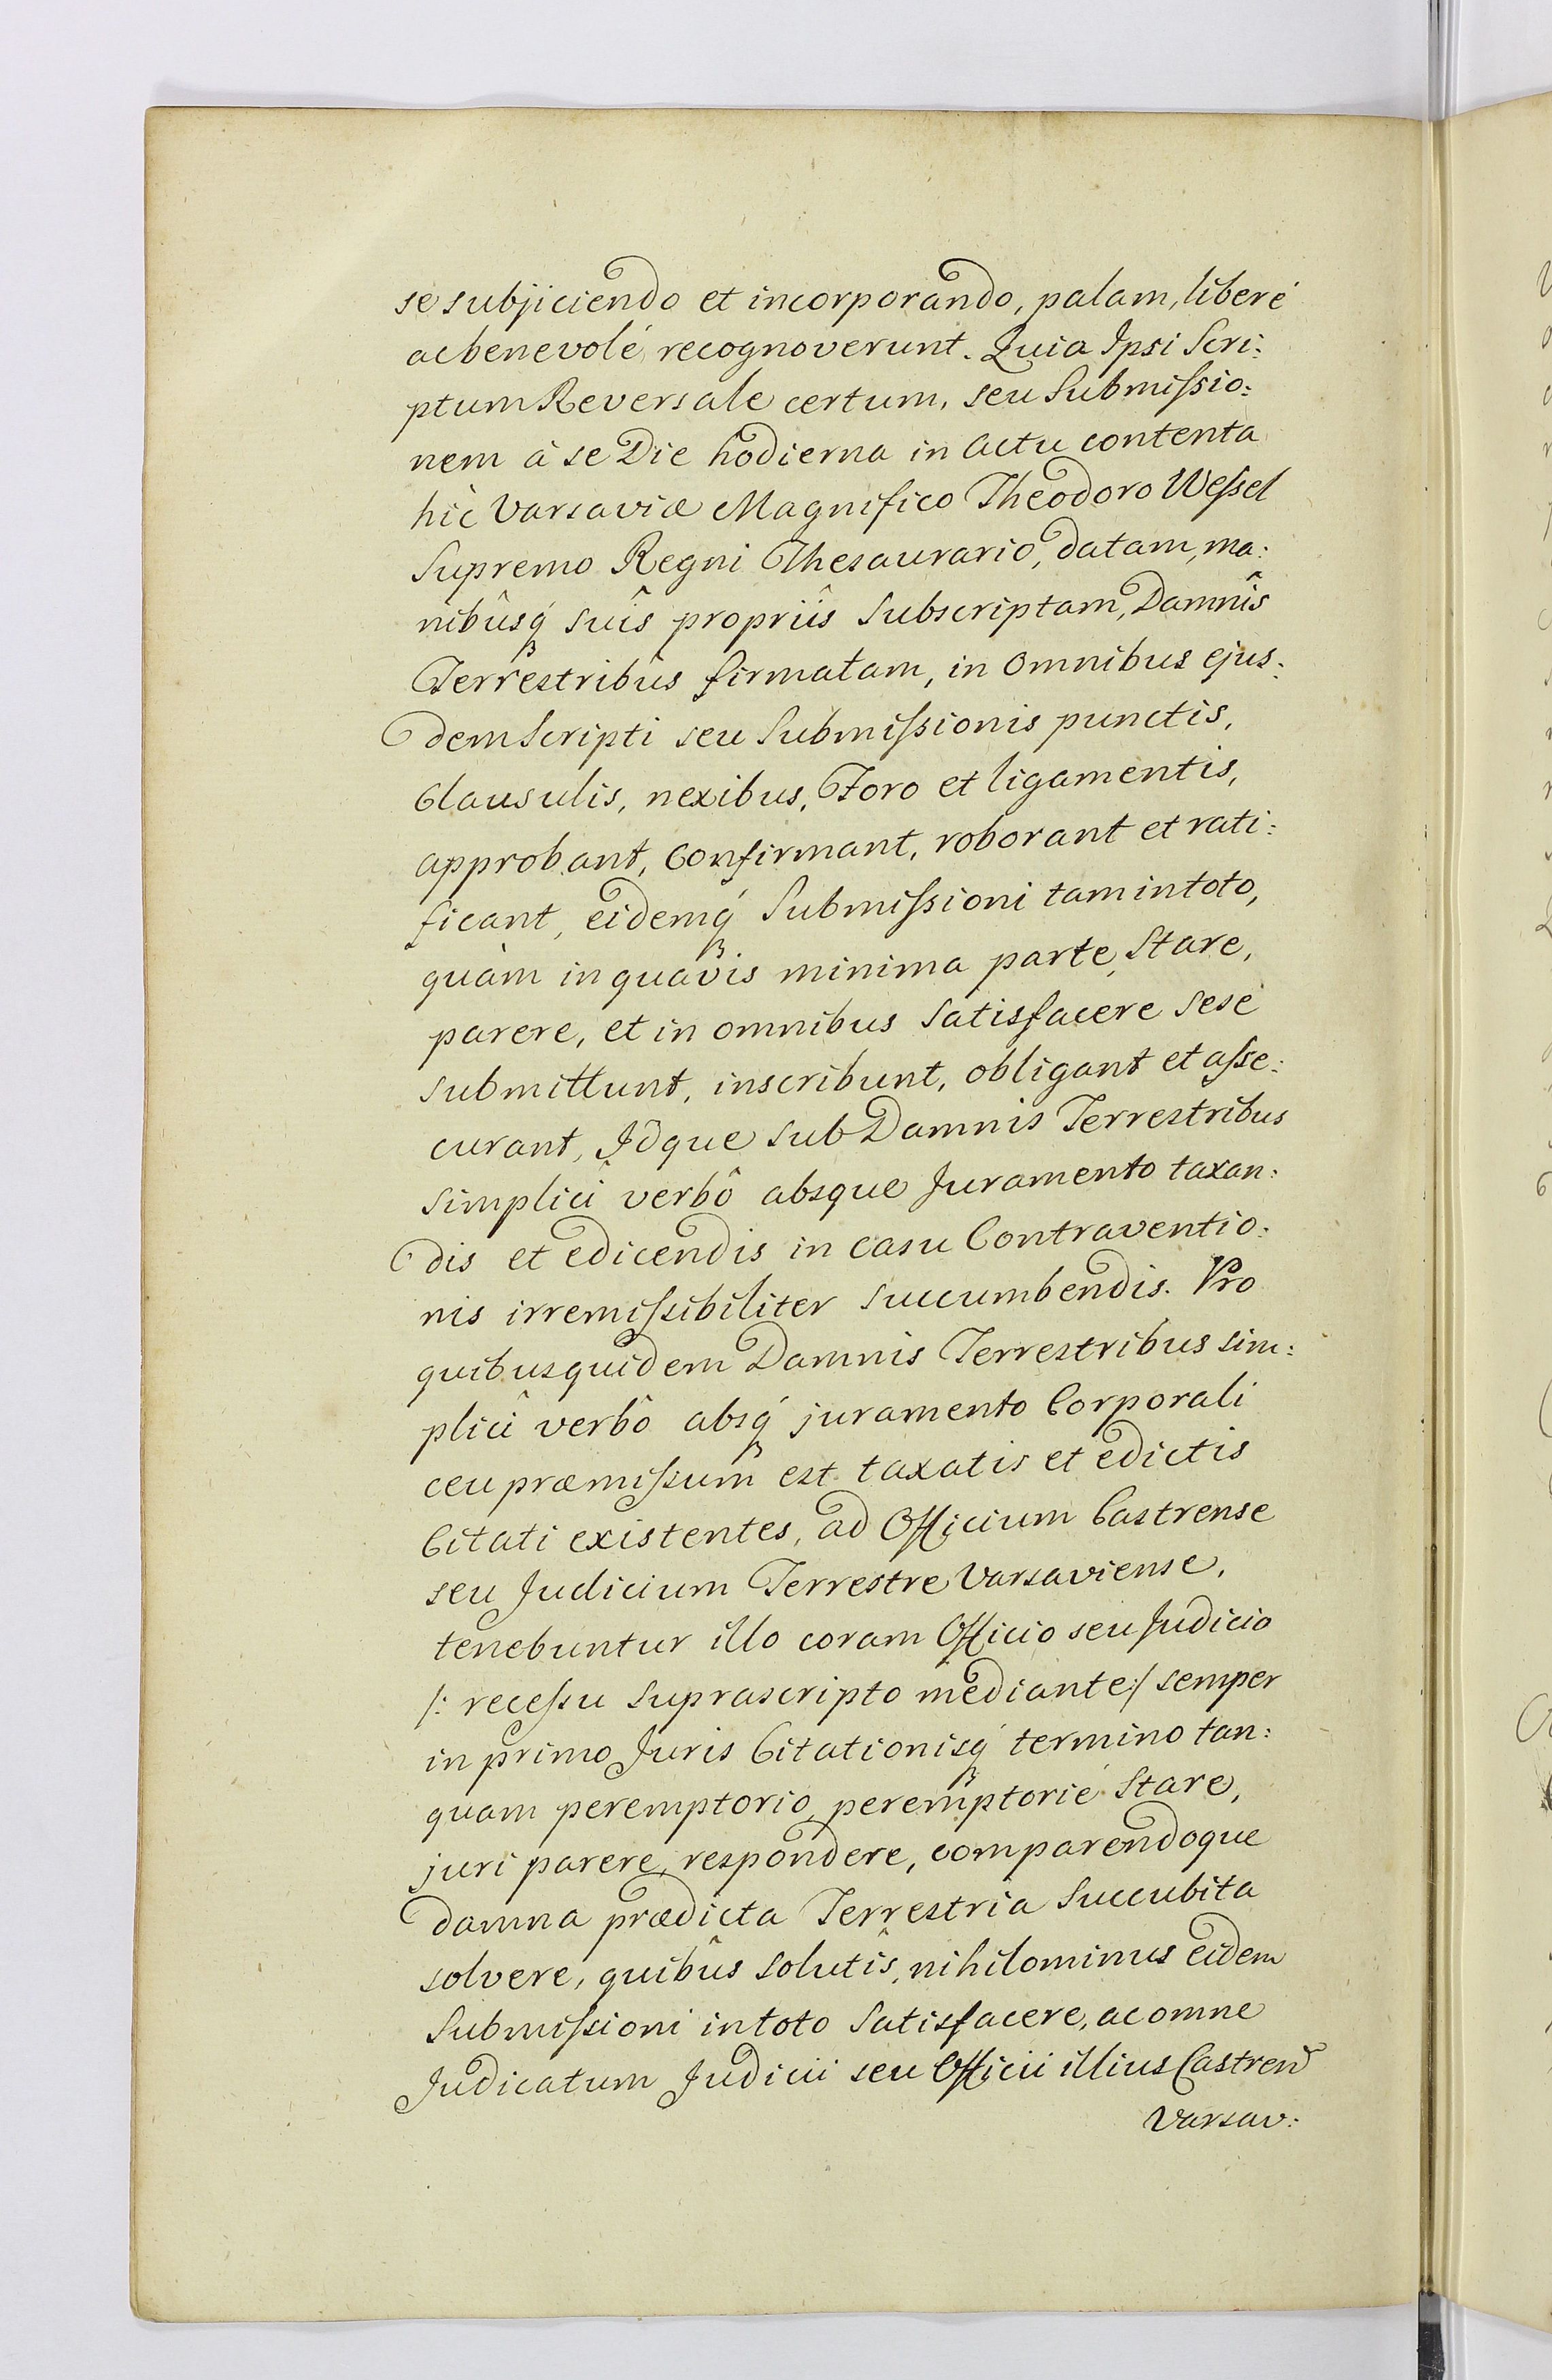 se subjiciendo et incorporando, palam, liberé
ac benevolé recognoverunt. Quia Ipsi Scri:
ptum Reversale certum, seu Submissio:
nem à se Die hodierna in Actu contenta
hîc Varsaviæ Magnifico Theodoro Wessel
Supremo Regni Thesaurario, datam, ma:
nibûsq́ suîs propriîs Subscriptam, Damnîs
Terrestribûs firmatam, in omnibus ejus:
dem Scripti seu Submissionis punctis,
Clausulis, nexibus, Foro et ligamentis,
approbant, Confirmant, roborant et rati:
ficant, eidemq́ Submissioni tam in toto,
quàm in quavis minima parte, Stare,
parere, et in omnibus Satisfacere sese
submittunt, inscribunt, obligant et asse:
curant, Idque sub Damnis Terrestribus
simplici verbô absque Juramento taxan:
dis et edicendis in casu Contraventio:
nis irremissibiliter succumbendis. Pro
quibus quidem Damnis Terrestribus sim:
plici verbô absq́ juramento Corporali
ceu præmissum est taxatis et edictis
Citati existentes, ad Officium Castrense
seu Judicium Terrestre Varsaviense,
tenebuntur illo coram Officio seu Judicio
/: recessu suprascripto mediante:/ semper
in primo Juris Citationisq́ termino tan:
quam peremptorio, peremptorié Stare,
juri parere, respondere, comparendoque
damna prædicta Terrestria Succubita
solvere, quibûs solutîs, nihilominus eidem
Submissioni in toto Satisfacere, ac omne
Judicatum Judicii seu Officii illius Castren̄
Varsav: